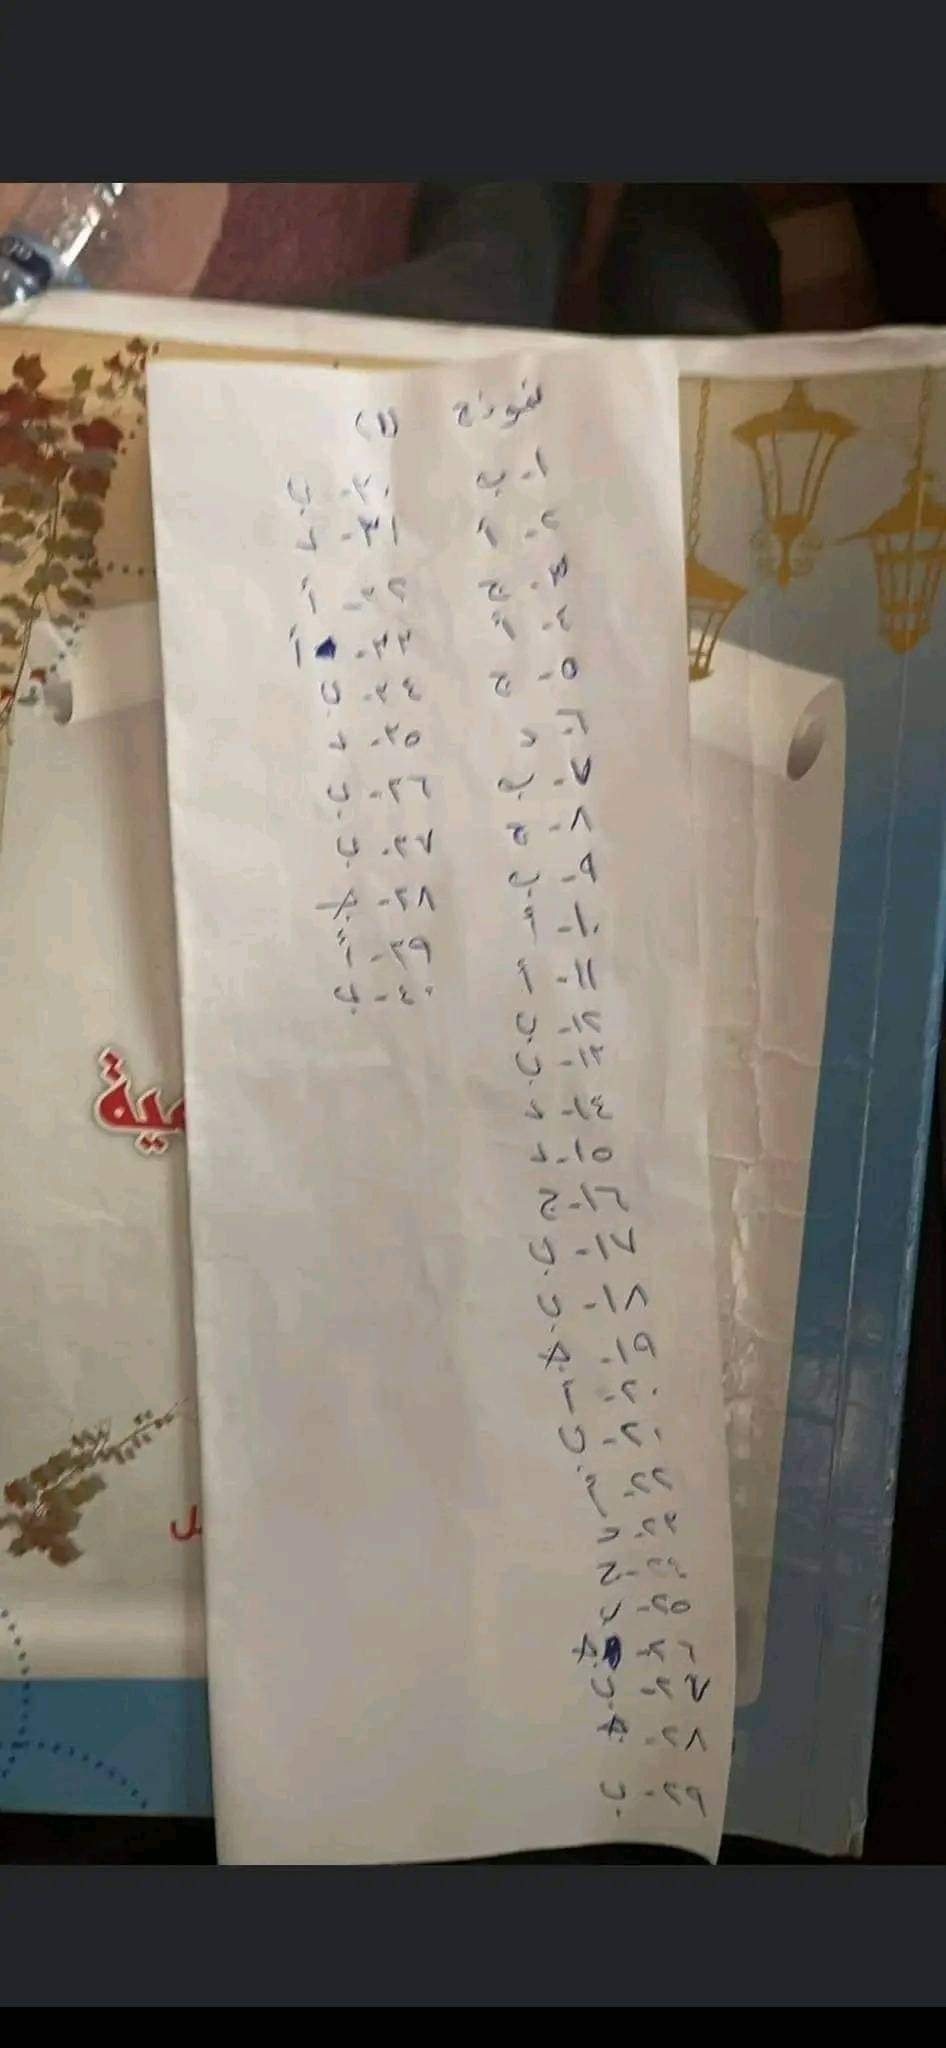 نموذج (١)
١- ب
٢- أ
٣- ج
٤- أ
٥- ج
٦- د
٧- ب
٨- ج
٩- ب
١٠- أ
١١- أ
١٢- ب
١٣- ب
١٤- د
١٥- د
١٦- ج
١٧- ب
١٨- ب
١٩- ج
٢٠- أ
٢١- ب
٢٢- ب
٢٣- د
٢٤- ج
٢٥- د
٢٦- ج
٢٧- ب
٢٨- ج
٢٩- ب
٣٠- ب
٣١- د
٣٢- أ
٣٣- أ
٣٤- ب
٣٥- د
٣٦- ب
٣٧- ب
٣٨- ج
٣٩- أ
٤٠- ب